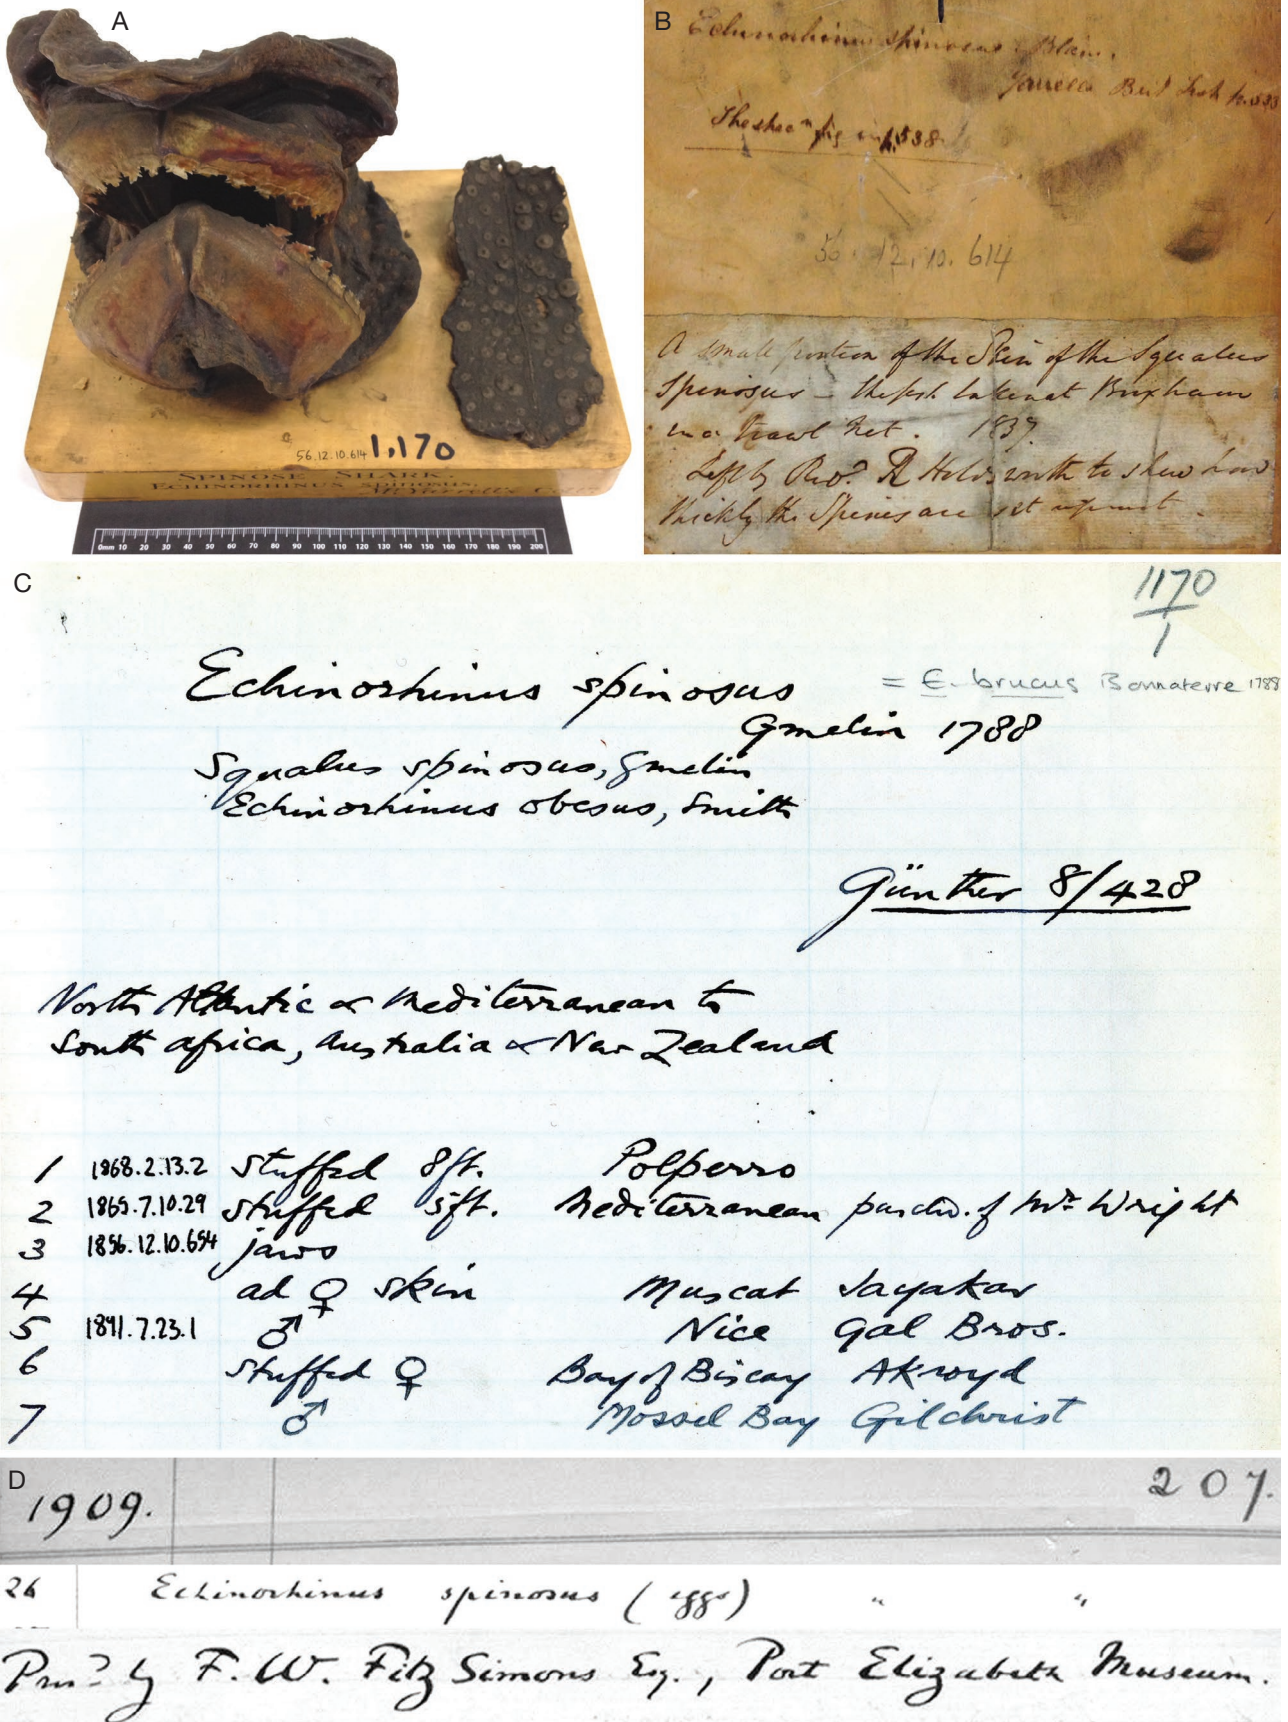 A
56.12.10.614 1,170
SPINOSE SHARK.
ECHINORHINUS SPINOSUS.
Mr Yarrell's
0mm 10 20 30 40 50 60 70 80 90 100 110 120 130 140 150 160 170 180 190 200
B
Echinorhinus spinosus Blain.
Yarrell Brit Fish p. 533
fig in p. 538
56.12.10.614
A small portion of the Skin of the Squalus
Spinosus – the fish taken at Brixham
in a trawl net. 1837
Left by Revd. R Holdsworth to shew how
thickly the Spines are set upon it.
C
1170
1
Echinorhinus spinosus = E. brucus Bonnaterre 1788
Gmelin 1788
Squalus spinosus, Gmelin
Echinorhinus obesus, Smith
Günther 8/428
North Atlantic & Mediterranean to
South Africa, Australia & New Zealand
1 1868.2.13.2 stuffed 8ft. Polperro
2 1865.7.10.29 stuffed 5ft. Mediterranean purchd. of Mr Wright
3 1856.12.10.654 jaws
4 ad ♀ skin Muscat Jayakar
5 1891.7.23.1 ♂ Nice Gal Bros.
6 stuffed ♀ Bay of Biscay Akroyd
7 ♂ Mossel Bay Gilchrist
D
1909. 207.
26 Echinorhinus spinosus (eggs) " "
by F. W. FitzSimons Esq., Port Elizabeth Museum.